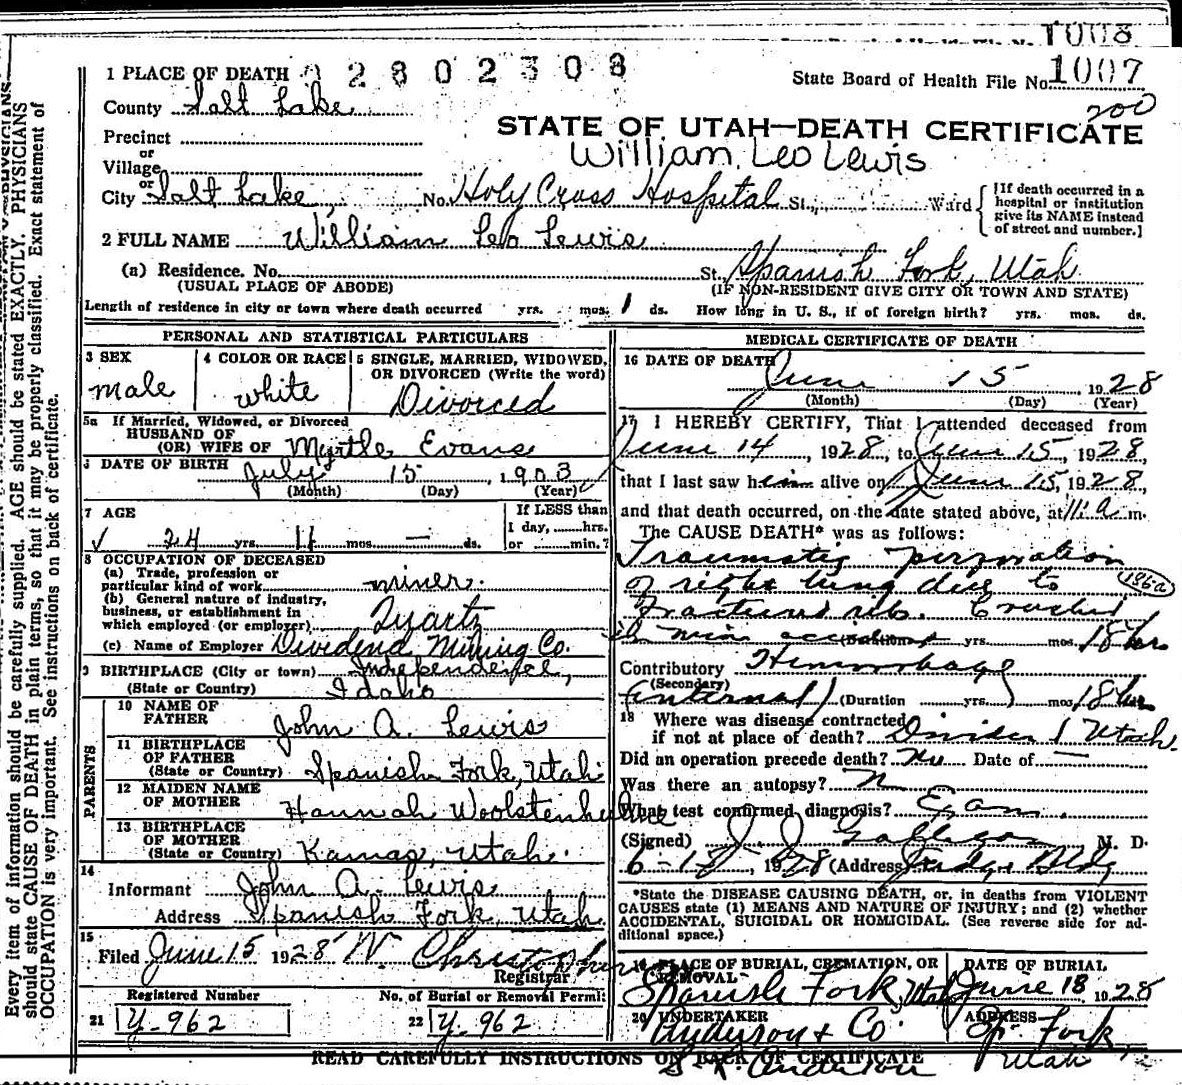 1008
State Board of Health File No. 1007
1 PLACE OF DEATH 02802308
200
County Salt Lake
STATE OF UTAH—DEATH CERTIFICATE
Precinct
William Leo Lewis
or
Village
or
City Salt Lake No. Holy Cross Hospital St., Ward
[If death occurred in a
hospital or institution
give its NAME instead
of street and number.]
2 FULL NAME William Leo Lewis
(a) Residence. No. St. Spanish Fork, Utah
(USUAL PLACE OF ABODE) (IF NON-RESIDENT GIVE CITY OR TOWN AND STATE)
Length of residence in city or town where death occurred yrs. mos. 1 ds. How long in U. S., if of foreign birth? yrs. mos. ds.
PERSONAL AND STATISTICAL PARTICULARS
3 SEX
male
4 COLOR OR RACE
white
5 SINGLE, MARRIED, WIDOWED,
OR DIVORCED (Write the word)
Divorced
5a If Married, Widowed, or Divorced
HUSBAND OF
(OR) WIFE OF Myrtle Evans
6 DATE OF BIRTH July 15, 1903
(Month) (Day) (Year)
7 AGE
24 yrs. 11 mos. — ds.
If LESS than
1 day, hrs.
or min.?
8 OCCUPATION OF DECEASED
(a) Trade, profession or
particular kind of work miner.
(b) General nature of industry,
business, or establishment in
which employed (or employer) Quartz
(c) Name of Employer Dividend Mining Co.
9 BIRTHPLACE (City or town) Independence,
(State or Country) Idaho
PARENTS
10 NAME OF
FATHER John A. Lewis
11 BIRTHPLACE
OF FATHER
(State or Country) Spanish Fork, Utah
12 MAIDEN NAME
OF MOTHER Hannah Woolstenhulme
13 BIRTHPLACE
OF MOTHER
(State or Country) Kamas, Utah.
14
Informant John A. Lewis
Address Spanish Fork, Utah
15
Filed June 15 1928 W. Christopherson
Registrar
Registered Number
21 Y-962
No. of Burial or Removal Permit
22 Y-962
MEDICAL CERTIFICATE OF DEATH
16 DATE OF DEATH
June 15 1928
(Month) (Day) (Year)
17 I HEREBY CERTIFY, That I attended deceased from
June 14, 1928, to June 15, 1928,
that I last saw him alive on June 15, 1928,
and that death occurred, on the date stated above, at 11 a m.
The CAUSE DEATH* was as follows:
Traumatic
of right lung due to 186a
Fractured rib. Crushed
in mine accident (Duration) yrs. mos. 18 hrs
Contributory Hemorrhage
(Secondary)
(internal) (Duration yrs. mos. 18 hrs
18 Where was disease contracted
if not at place of death? Utah
Did an operation precede death? No Date of —
Was there an autopsy? N
What test confirmed diagnosis? Exam.
(Signed) J. J. Galligan M. D.
6-15, 1928 (Address Judge Bldg
*State the DISEASE CAUSING DEATH, or, in deaths from VIOLENT
CAUSES state (1) MEANS AND NATURE OF INJURY; and (2) whether
ACCIDENTAL, SUICIDAL OR HOMICIDAL. (See reverse side for ad-
ditional space.)
19 PLACE OF BURIAL, CREMATION, OR
REMOVAL
Spanish Fork, Utah
DATE OF BURIAL
June 18 1928
20 UNDERTAKER
Anderson & Co.
ADDRESS
Sp. Fork,
Utah
READ CAREFULLY INSTRUCTIONS ON BACK OF CERTIFICATE
Anderson
Every item of information should be carefully supplied. AGE should be stated EXACTLY. PHYSICIANS
should state CAUSE OF DEATH in plain terms, so that it may be properly classified. Exact statement of
OCCUPATION is very important. See instructions on back of certificate.